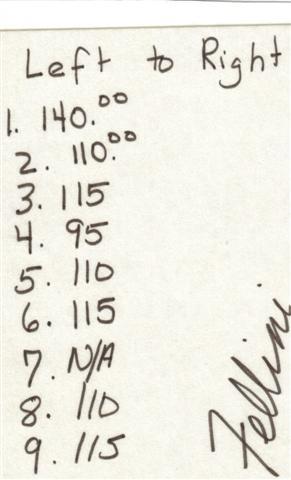 Left to Right
1. 140.00
2. 110.00
3. 115
4. 95
5. 110
6. 115
7. N/A
8. 110
9. 115
Fellini